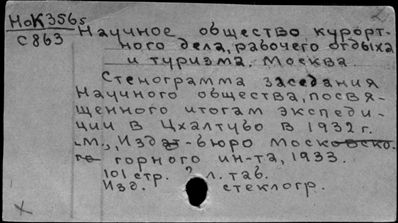 НоК356s
С863
Научное общество курорт-
ного дела, рабочего отдыха
и туризма. Москва
Стенограмма заседания
Научного общества, посвя-
щенного итогам экспеди-
ции в Цхалтубо в 1932 г.
М., Издат-бюро Московско-
го горного ин-та, 1933.
101 стр. ? л. таб.
Изд. стеклогр.